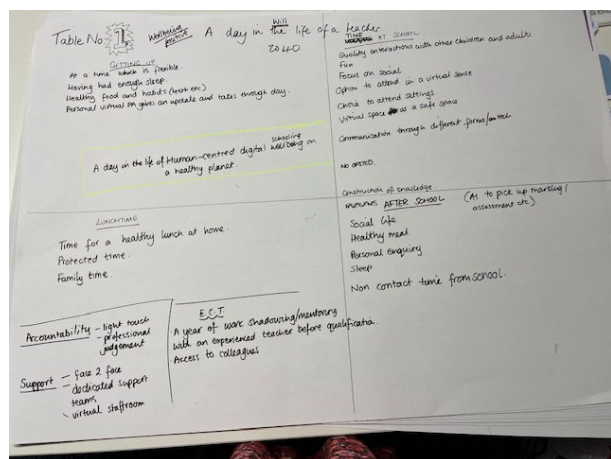 Table No 1
Wellbeing positive
A day in the life of a teacher
Will
2040
GETTING UP
At a time which is flexible.
Having had enough sleep.
Healthy food and habits (teeth etc)
Personal virtual PA gives an update and talks through day.
schooling
A day in the life of Human-centred digital wellbeing on
a healthy planet.
TIME AT SCHOOL
Quality interactions with other children and adults
Fun
Focus on social
Option to attend in a virtual sense
Choice to attend settings
Virtual space as a safe space
Communication through different forms/on tech
NO OFSTED.
Construction of knowledge
LUNCHTIME
Time for a healthy lunch at home.
Protected time.
Family time.
AFTER SCHOOL
(AI to pick up marking/
assessment etc)
Social life
Healthy meal
Personal enquiry
Sleep
Non contact time from school.
Accountability - light touch
- professional
judgement
Support - face 2 face
- dedicated support
teams
- virtual staffroom
E.C.T.
· A year of work shadowing/mentoring
with an experienced teacher before qualification.
· Access to colleagues